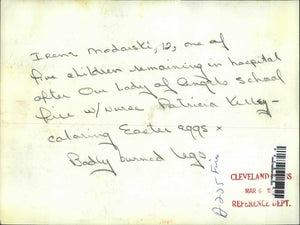 Irene Modarski, 12, one of
five children remaining in hospital
after Our Lady of Angels School
fire w/ nurse Patricia Kelley -
coloring Easter eggs x
Badly burned legs.
CLEVELAND PRESS
MAR 6
REFERENCE DEPT.